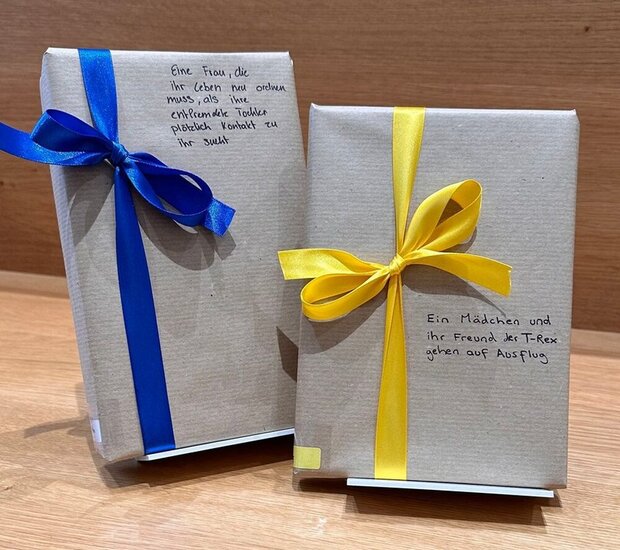 Eine Frau, die
ihr Leben neu ordnen
muss, als ihre
entfremdete Tochter
plötzlich Kontakt zu
ihr sucht
Ein Mädchen und
ihr Freund der T-Rex
gehen auf Ausflug